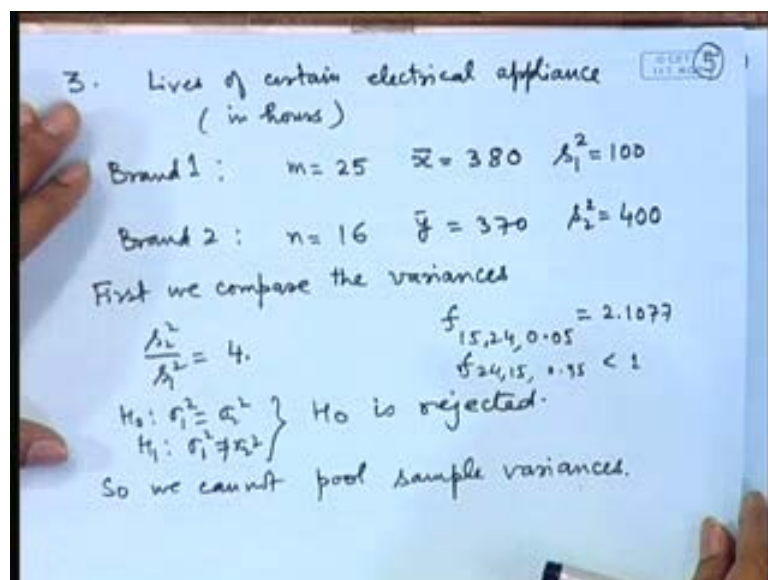 3. Lives of certain electrical appliance
(in hours)
5
Brand 1 : m = 25 x̄ = 380 s₁² = 100
Brand 2 : n = 16 ȳ = 370 s₂² = 400
First we compare the variances
s₂²/s₁² = 4.
f₁₅,₂₄,₀.₀₅ = 2.1077
f₂₄,₁₅, ₀.₉₅ < 1
H₀ : σ₁² = σ₂² } H₀ is rejected.
H₁ : σ₁² ≠ σ₂²
So we cannot pool sample variances.